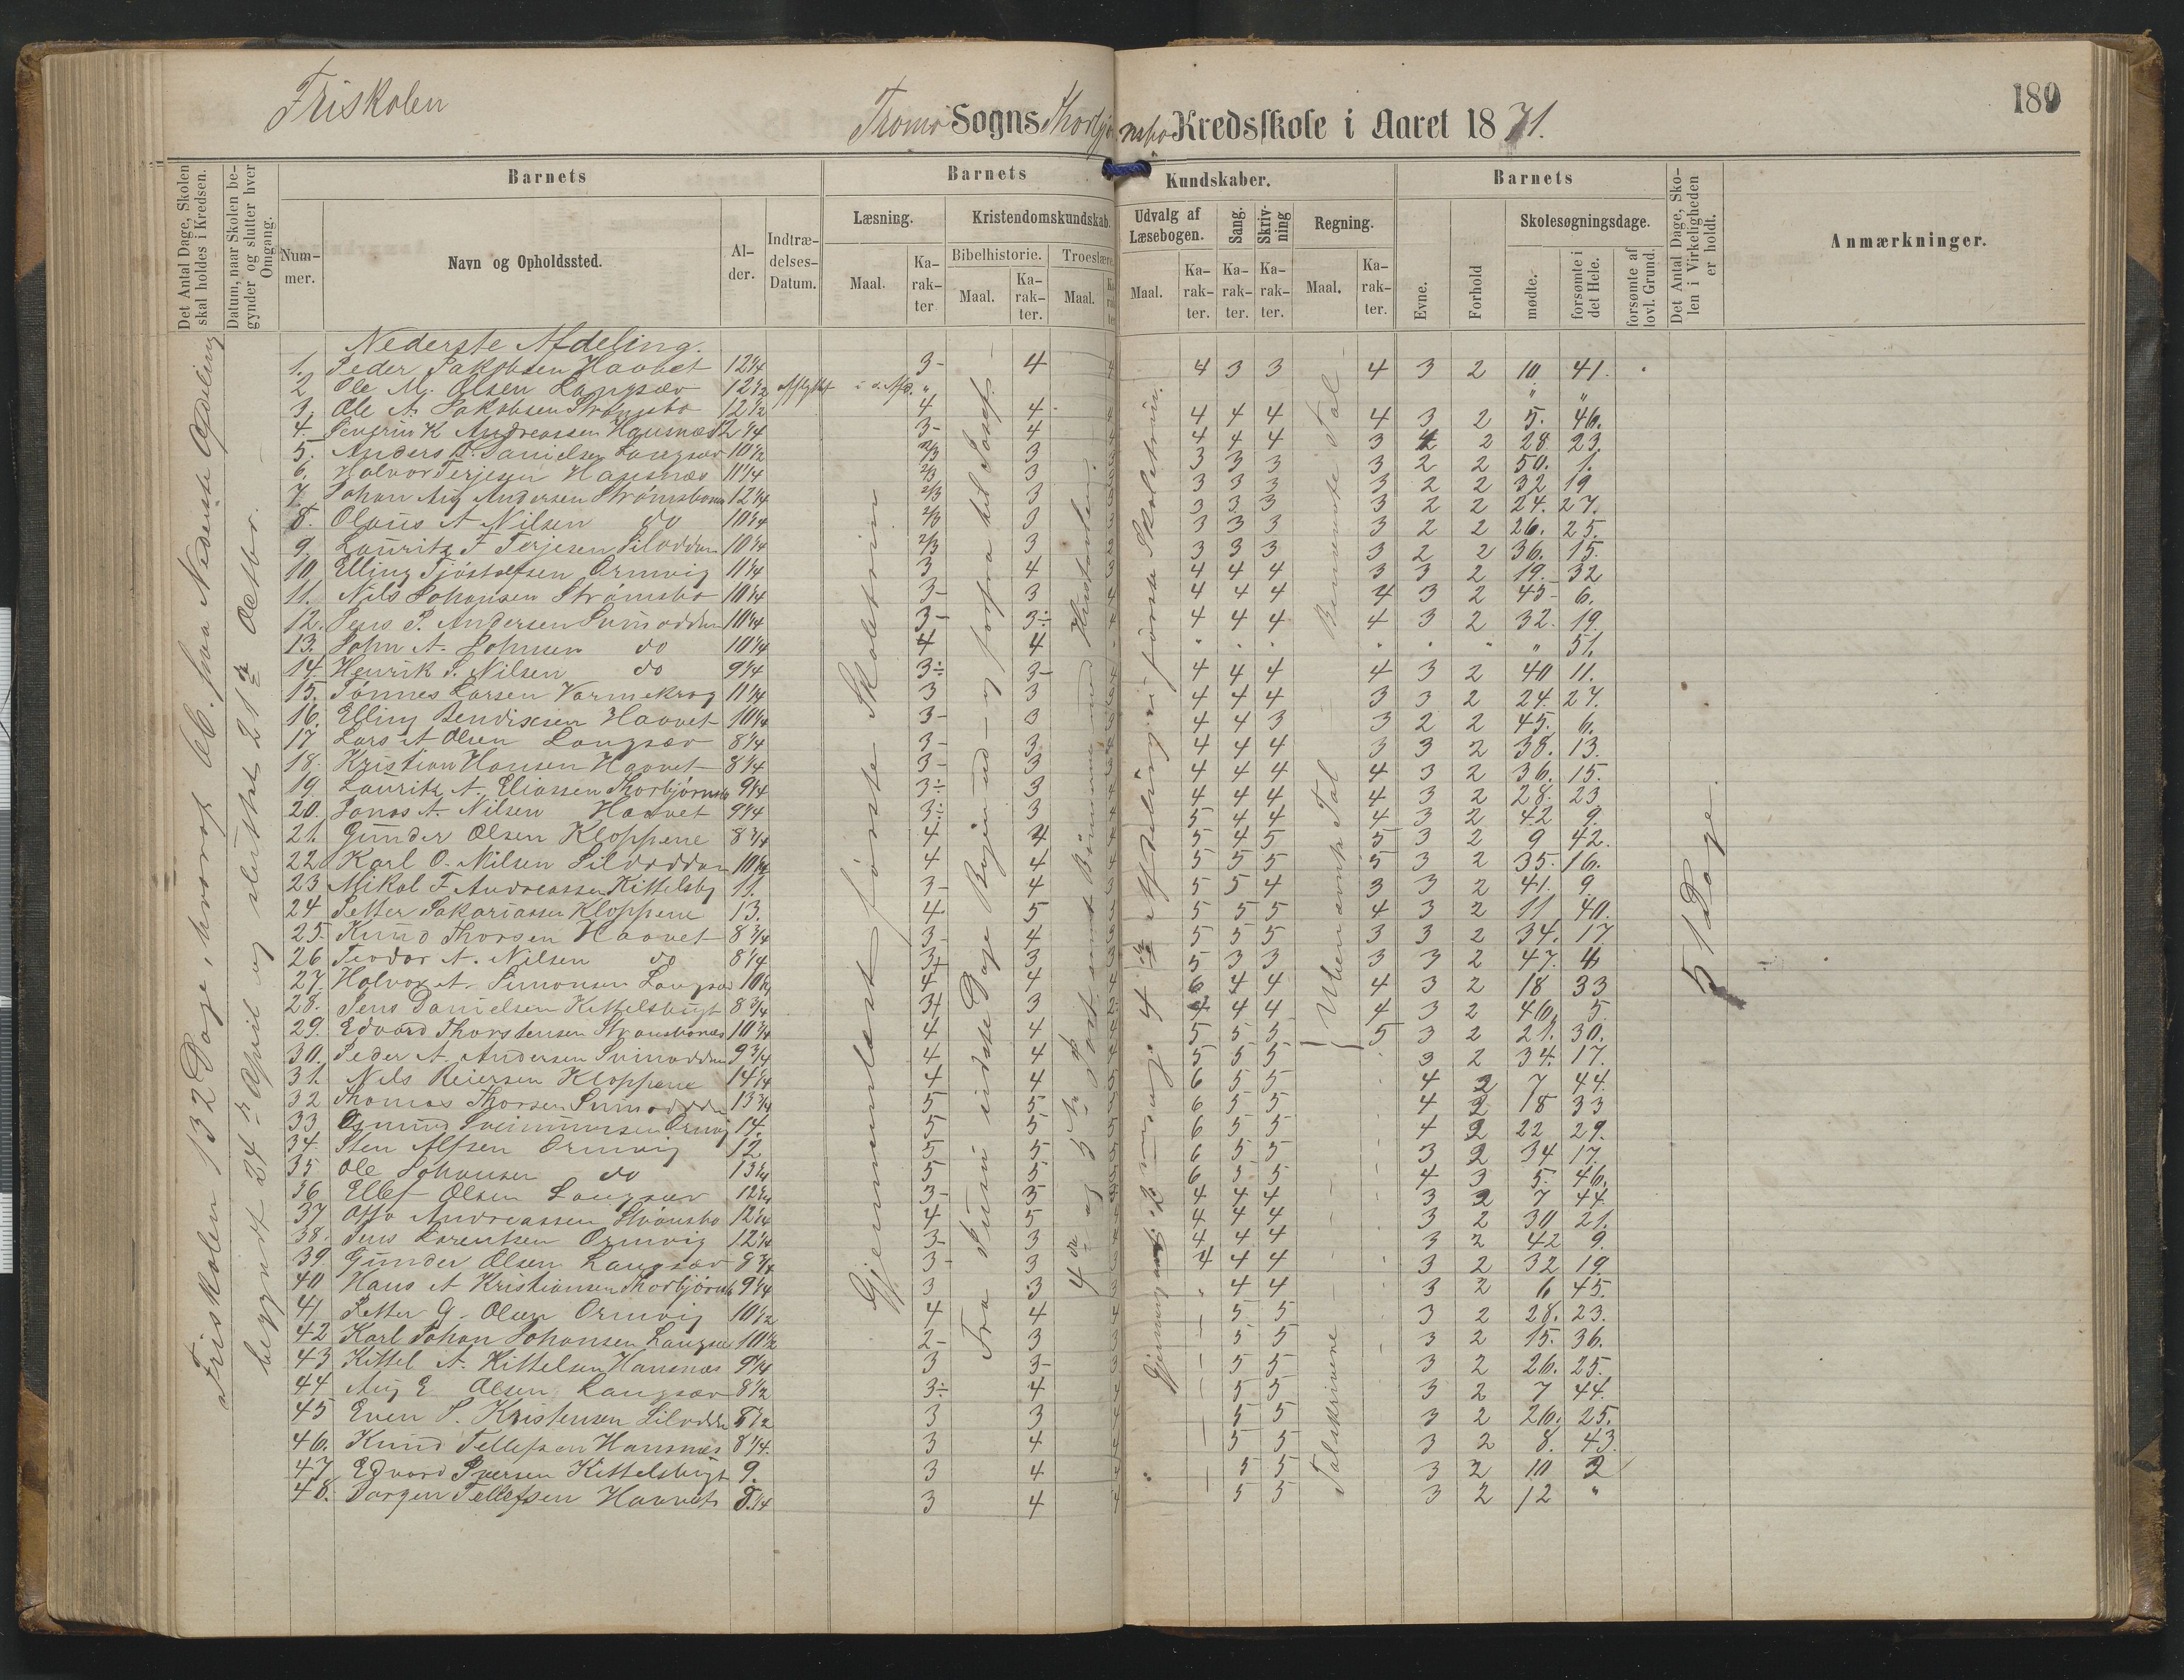 Friskolen
Tromø Sogns Thorbjørnsbo Kredsskole i Aaret 1871.
189
Det Antal Dage, Skolen skal holdes i Kredsen.
Datum, naar Skolen begynder og slutter hver Omgang.
Barnets
Barnets
Kundskaber.
Barnets
Det Antal Dage, Skolen i Virkeligheden er holdt.
Anmærkninger.
Nummer.
Navn og Opholdssted.
Alder.
Indtrædelses-Datum.
Læsning.
Kristendomskundskab.
Udvalg af Læsebogen.
Sang.
Skrivning
Regning.
Evne.
Forhold
Skolesøgningsdage.
Bibelhistorie.
Troeslære.
Maal.
Karakter.
mødte.
forsømte i det Hele.
forsømte af lovl. Grund.
Friskolen 132 Dage, hvoraf 66. paa Nederste Afdeling
begyndt 24de April og sluttet 21de Octbr.
Nederste Afdeling.
1. Peder Jakobsen Havbet 12 1/4 3- 4 4 3 3 4 3 2 10 41.
2 Ole M. Olsen Langsæv 12 1/2 afflyttet
3. Ole A. Jakobsen Strømsbo 12 1/2 4 4 4 4 4 4 3 2 5. 46.
4. Severin K Andreassen Hansnæs 12 1/4 3- 4 4 4 4 3 4 2 28 23.
5. Anders D. Danielsen Langsæv 10 1/2 2/3 3 3 3 3 3 2 2 50. 1.
6. Halvor Terjesen Hansnæs 11 1/4 2/3 3 3 3 3 3 2 2 32 19
7. Johan Aug Andersen Strømsbo 12 1/4 2/3 3 3 3 3 3 2 2 24. 27.
8. Olaus A Nilsen do 10 1/4 2/3 3 3 3 3 3 2 2 26. 25.
9. Lauritz F Terjesen Silodden 10 1/4 2/3 3 3 3 3 3 2 2 36. 15.
10 Elling Tjøstolfsen Ormvig 11 1/4 3 4 4 4 4 3 3 2 19. 32
11. Nils Johansen Strømsbo 10 1/4 3- 3 4 4 4 4 3 2 45- 6.
12. Jens P. Andersen Sumodden 10 1/4 3- 3÷ 4 4 4 4 3 2 32. 19.
13. John A. Johnsen do 10 1/4 4 4 " 51.
14. Henrik S. Nilsen do 9 1/4 3÷ 3- 4 4 4 4 3 2 40 11.
15. Tønnes Larsen Varmekrog 11 1/4 3 3 4 4 4 3 3 2 24. 27.
16. Elling Bendixsen Havvet 10 1/4 3- 3 4 4 3 3 2 2 45. 6.
17 Lars A Olsen Langsæv 8 1/4 3- 3 4 4 4 3 3 2 38. 13.
18. Kristian Hansen Havvet 8 1/4 3- 3 4 4 4 4 3 2 36. 15.
19. Lauritz A. Eliassen Thorbjørnsb 9 1/4 3÷ 3 4 4 4 4 3 2 28. 23
20. Jonas A. Nilsen Havvet 9 1/4 3÷ 3 5 4 4 4 3 2 42 9.
21. Gunder Olsen Kloppene 8 3/4 4 4 5 4 5 5 3 2 9 42.
22 Karl O. Nilsen Silodden 10 1/4 4 4 5 5 5 5 3 2 35. 16.
23 Mikal F. Andreassen Kittelsby 11. 3- 4 5 5 4 3 3 2 41. 9.
24 Petter Sakariassen Kloppene 13. 4. 5 5 5 5 4 3 2 11 40.
25. Knud Thorsen Havvet 8 3/4 3- 4 5 5 5 3 3 2 34. 17.
26 Teodor A. Nilsen do 8 1/4 3+ 3 5 3 3 3 3 2 47. 4
27. Halvor A. Simonsen Langsæv 4 4 6 4 4 4 3 2 18 33
28. Jens Danielsen Kittelsbugt 8 3/4 3+ 3 4 4 4 4 3 2 46. 5.
29. Edvard Thorstensen Strømsbonæs 10 3/4 4 4 5 5 5 5 3 2 21. 30.
30. Peder A. Andersen Sumodden 9 3/4 4 4 5 5 5 3 2 34. 17.
31. Nils Reiersen Kloppene 14 1/4 4 4 6 5 5 4 2 7 44.
32 Thomas Thorsen Sumodden 13 3/4 5 5 6 5 5 4 2 18 33
33 Osmund Ormvig 14. 5 5 6 5 5 4 2 22 29.
34. Sten Alfsen Ormvig 12 5 5 6 5 5 3 2 34 17.
35 Ole Johansen do 13 1/4 5 5 6 5 5 4 3 5. 46.
36 Ellef Olsen Langsæv 12 1/4 3- 3 4 4 4 3 2 7 44.
37 Otto Andreassen Strømsbo 12 1/4 4 5 4 4 4 3 2 30 21.
38. Jens Lorentsen Ormvig 12 1/4 3- 3 4 4 4 3 2 42 9.
39 Gunder Olsen Langsæv 8 3/4 3- 3 4 4 4 3 2 32 19.
40 Hans A Kristiansen Thorbjørnsb 9 1/4 3 3 4 4 3 2 6 45.
41 Petter G. Olsen Ormvig 10 1/2 4 4 5 5 3 2 28. 23.
42 Karl Johan Johansen Langsæv 10 1/2 2- 3 5 5 3 2 15. 36.
43 Kittel A. Kittelsen Hansnæs 9 1/4 3 3- 5 5 3 2 26. 25.
44 Aug E Olsen Langsæv 8 1/2 3÷ 4 5 5 3 2 7 44.
45 Even S. Kristensen Silodden 8 1/2 3 3 5 5 3 2 26. 25.
46. Knud Tellefsen Hansnæs 8 1/4. 3 4 5 5 3 2 8. 43.
47. Edvard Iversen Kittelsbugt 9. 3 4 5 5 3 2 10 2
48. Jørgen Tellefsen Havvet 8. 1/4 3 4 5 5 3 2 12 "
Gjennemlæst første Skoletrin
Fra Jesu sidste Dage Bogen ud - og forfra til Josef.
4de og 5te Part samt Bønnerne med Hustavlen.
første Skoletrin.
Talskrivene
Ubenævnte Tal
Benævnte Tal
51 Dage.